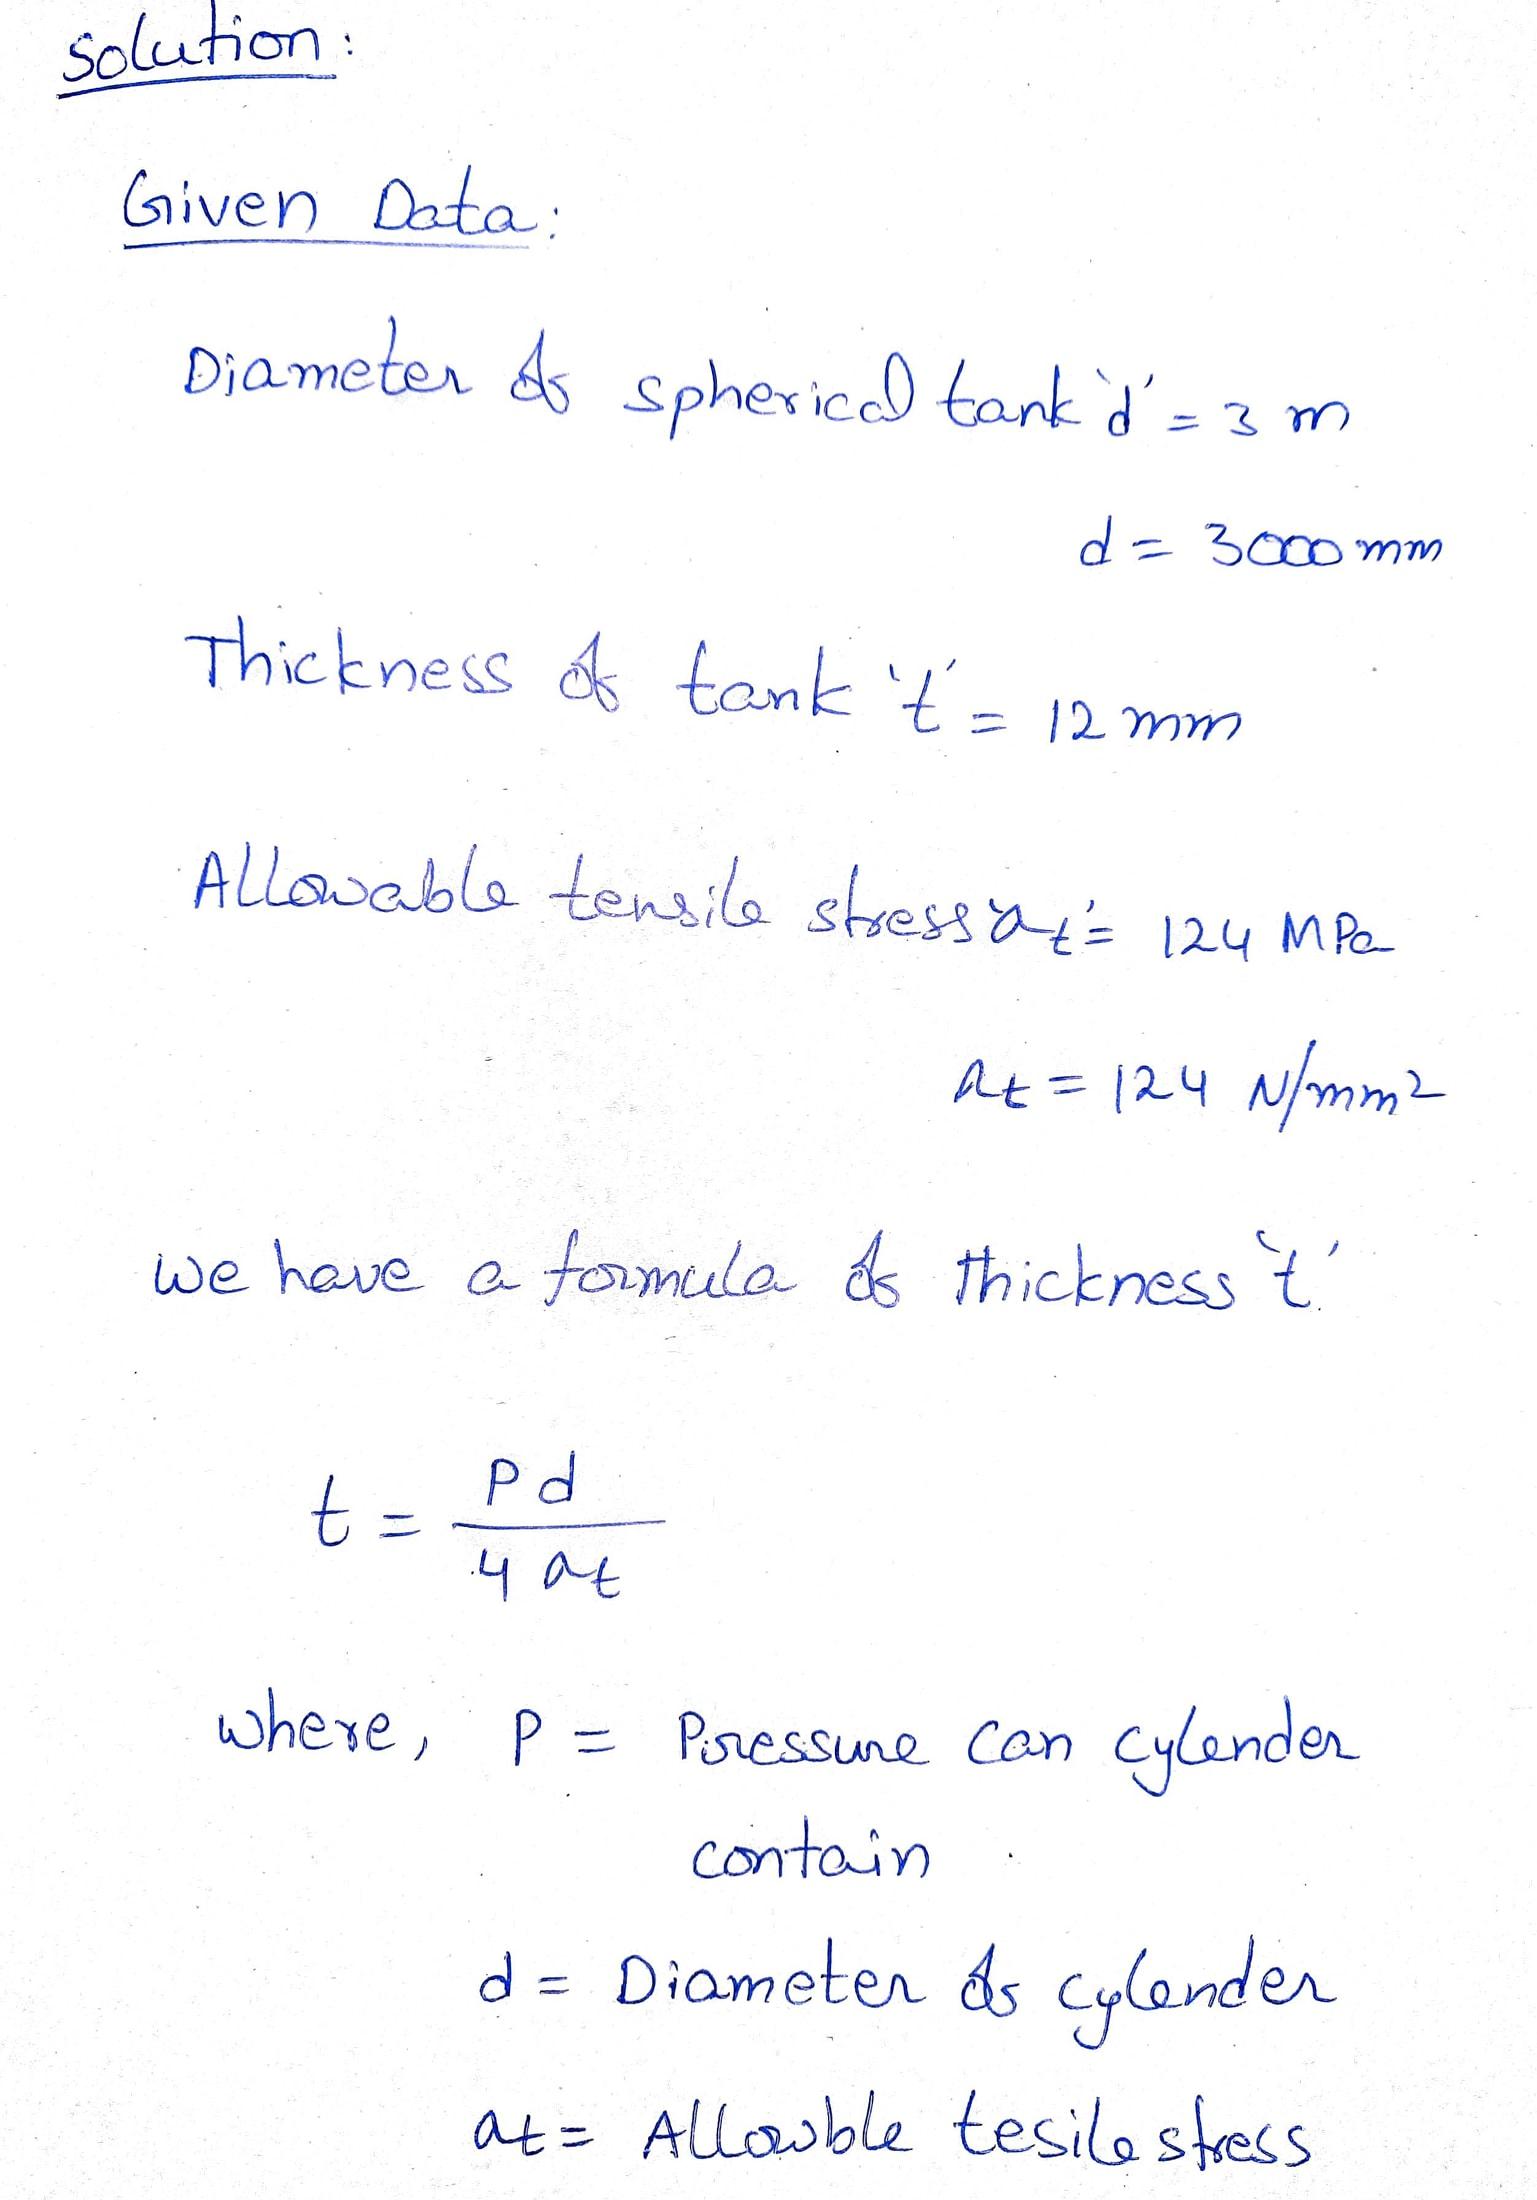 Solution:
Given Data:
Diameter of spherical tank 'd' = 3 m
d = 3000 mm
Thickness of tank 't' = 12 mm
Allowable tensile stress 'σt' = 124 MPa
σt = 124 N/mm²
We have a formula of thickness 't'
t = Pd / 4 σt
where, P = Pressure can cylender
contain
d = Diameter of cylender
σt = Allowble tesile stress